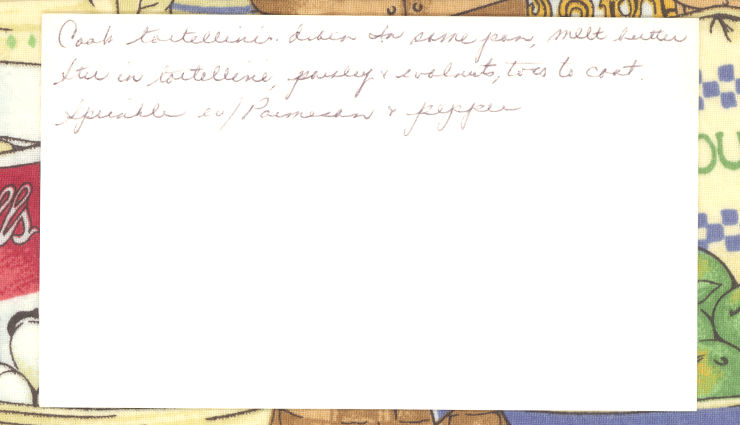 Cook tortellini. drain In same pan, melt butter
Stir in tortellini, parsley & walnuts, toss to coat.
Sprinkle w/ Parmesan & pepper
lls
OU